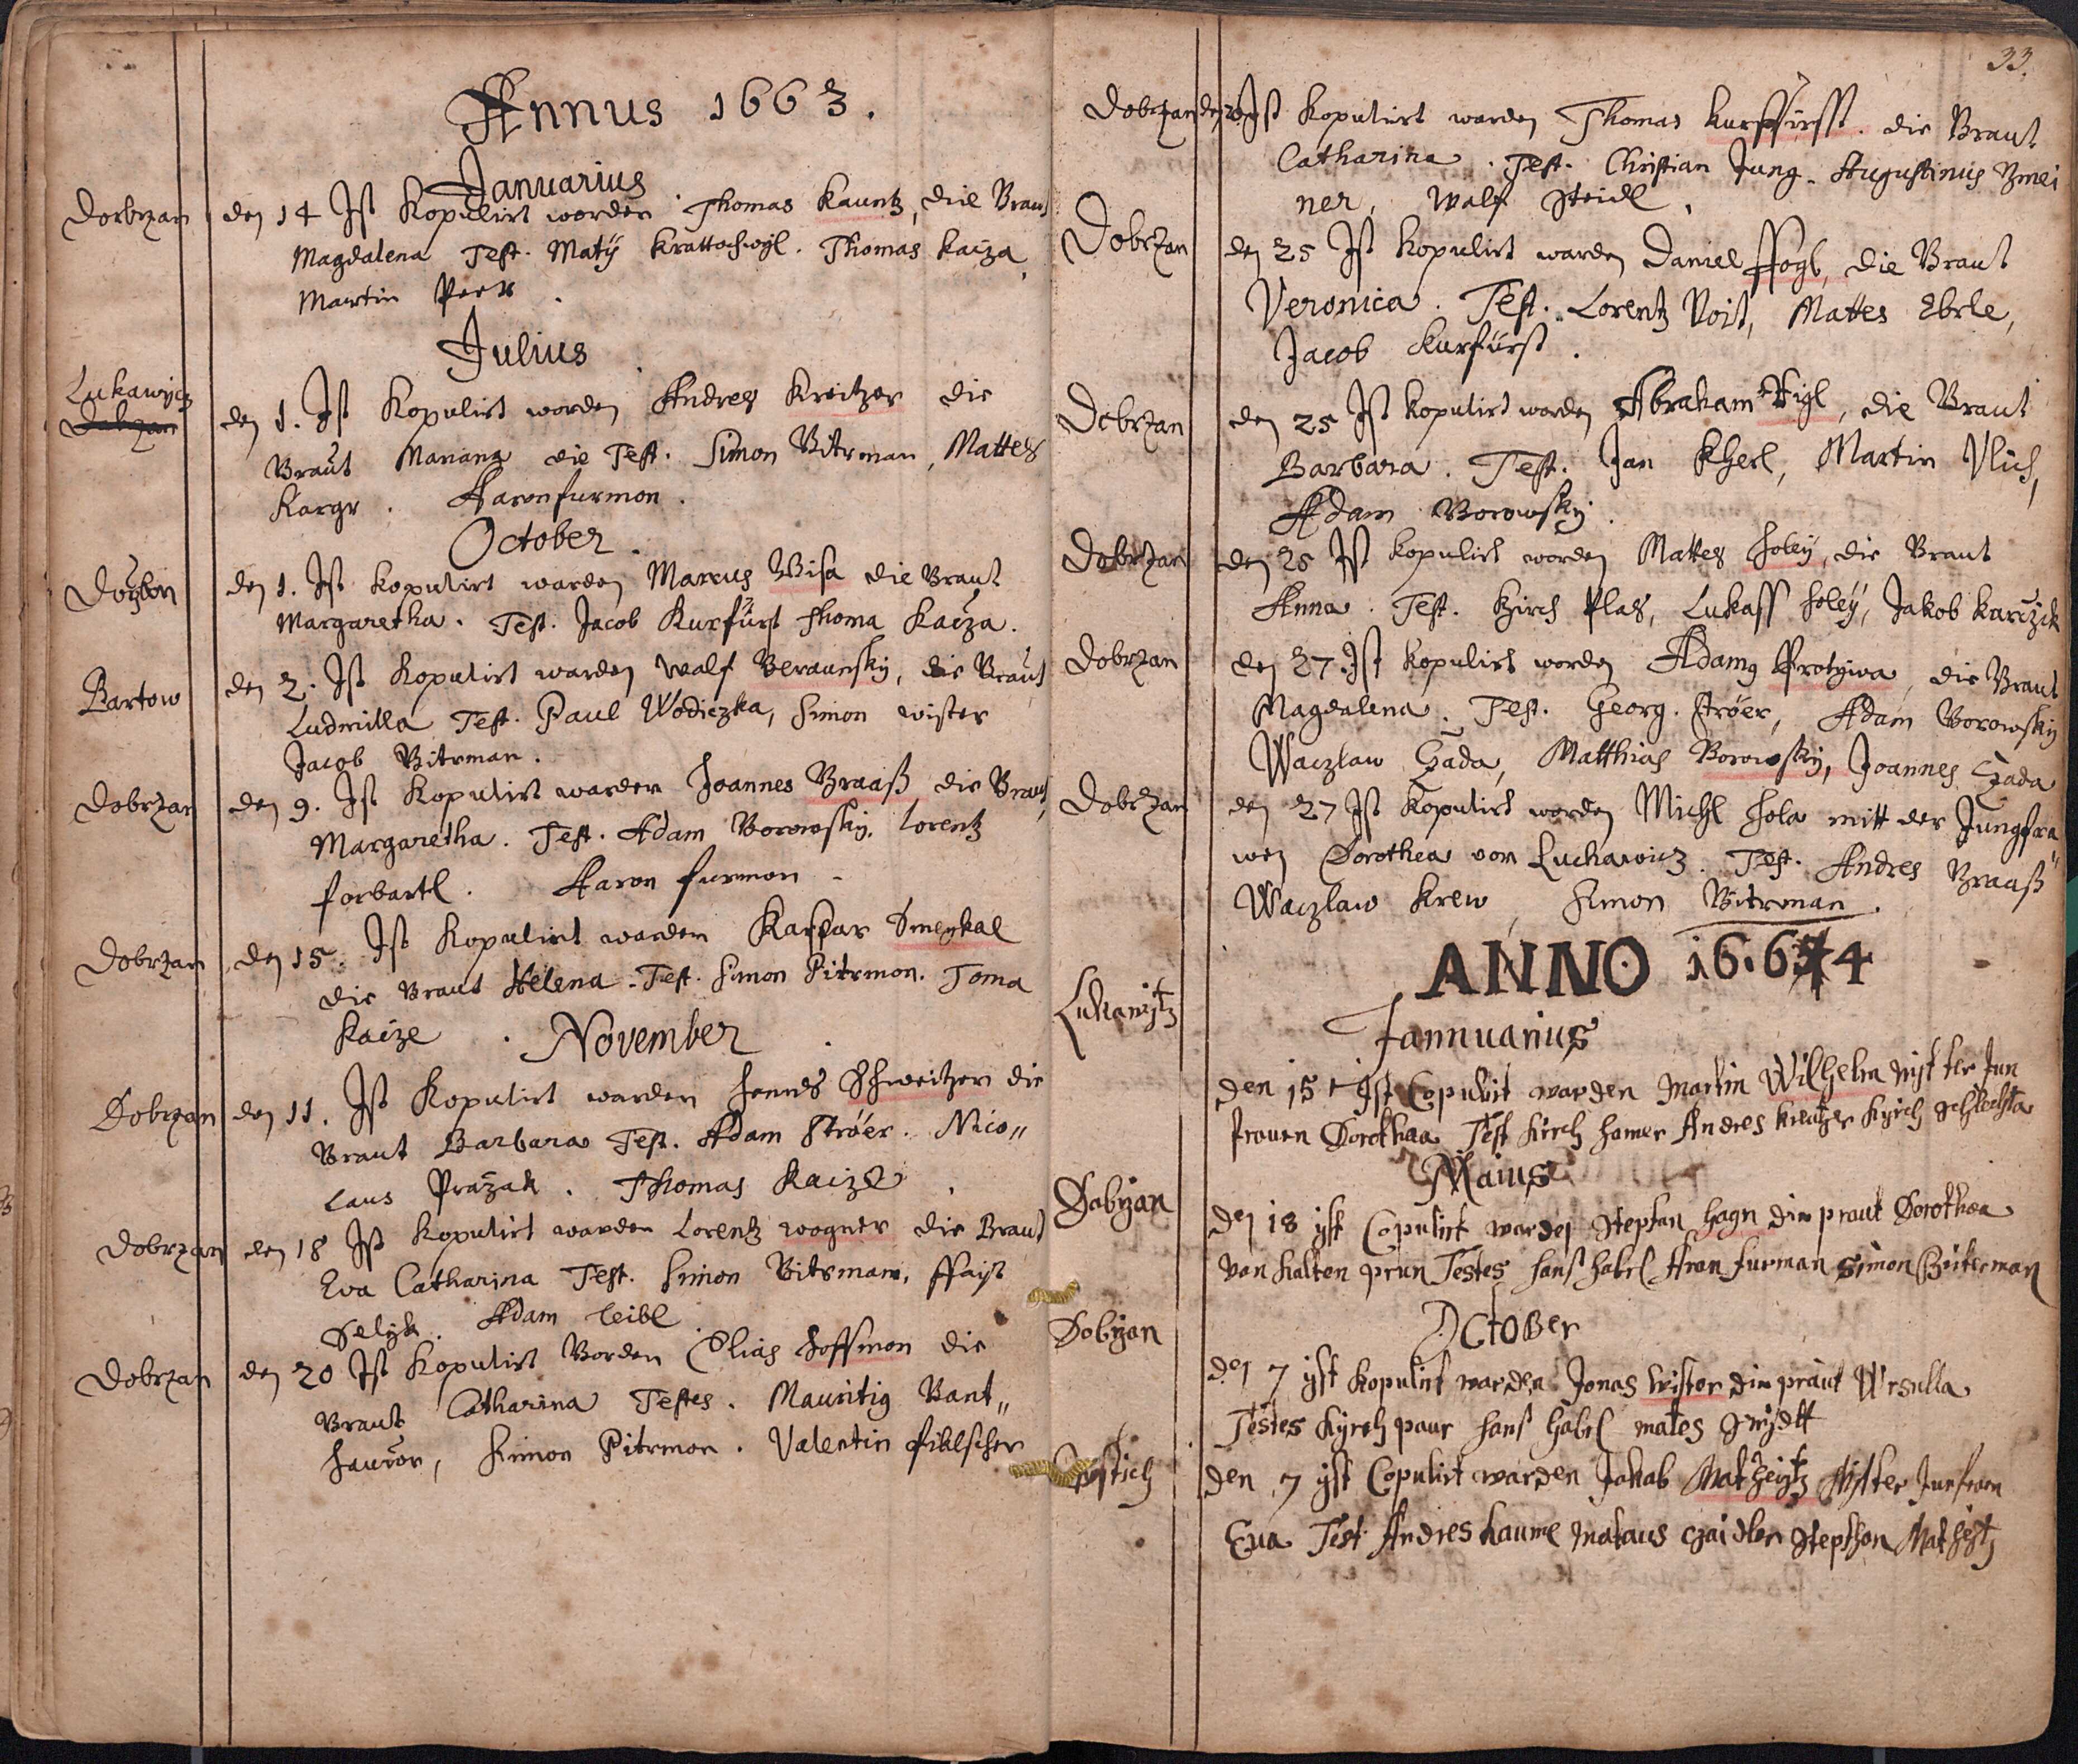 Annus 1663.
Januarius
Dorbrzan den 14 Ist Kopulirt worden Thomas Kauntz, die Braut
Magdalena Test. Matÿ Krattochwyl. Thomas Kaiza,
Martin Peck.
Julius
Lukawicz
Dobrzan
den 1. Ist Kopulirt worden Andres Kreitzer die
Braut Mariana die Test. Simon Bitrman, Mattes
Kargr. Aaron furmon.
October
den 1. Ist Kopulirt warden Marcus Bisa die Braut
Margaretha. Test. Jacob Kurfürst Thoma Kaiza.
Bartow den 2. Ist Kopulirt warden Walf Beraunsky, die Braut
Ludmilla Test. Paul Wodiczka, Simon wister
Jacob Bitrman.
Dobrzan den 9. Ist Kopulirt warden Joannes Braaß die Braut,
Margaretha. Test. Adam Borowsky. Lorentz
forbartl. Aaron furmon
Dobrzan den 15. Ist Kopulirt warden Kaspar Smeykal
die Braut Helena. Test. Simon Pitrmon. Toma
Kaize.
November
Dobrzan den 11. Ist Kopulirt warden Schweitzer die
Braut Barbara Test. Adam Ströer. Nico„
laus Prazak. Thomas Kaize.
Dobrzan den 18 Ist Kopulirt warden Lorentz wogner die Braut
Eva Catharina Test. Simon Bitrman,
Adam Leibl
Dobrzan den 20 Ist Kopulirt Borden Elias Hoffmon die
Braut Catharina Testes. Mauritig Bant„
Simon Pitrmon. Valentin
33.
Dobrzan Ist Kopulirt warden Thomas Kurffürsst. die Braut
Catharina. Test. Christian Jung. Augustinus Zmei
ner, Walf Steidl.
Dobrzan den 25 Ist Kopulirt warden Daniel ffogl, die Braut
Veronica. Test. Lorentz Voit, Mattes Ebrle,
Jacob Kurfürst.
Dobrzan den 25 Ist Kopulirt worden Abraham Higl, die Braut
Barbara. Test. Jan Kherl, Martin Vlich,
Adam Borowsky.
Dobrzan den 25 Ist Kopulirt worden Mattes Holey, die Braut
Anna. Test. Plas, Lukass Holeÿ, Jakob Karczik
Dobrzan den 27. Ist Kopulirt worden Adam Protziwa, die Braut
Magdalena. Test. Georg. Ströer, Adam Borowsky
Waczlaw Czada, Matthias Borowsky, Joannes Czada
Dobrzan den 27 Ist Kopulirt worden Michl Hola mitt der Jungfra
wen Dorothea von Luchawicz. Test. Andres Braaß„
Waczlaw Krew, Simon Bitrman.
ANNO 16.64
Jannuarius
Lukawitz
den 15 Ist Copulirt warden Martin Wilhelm mit ter Jun
frauen Dorothaa Test Kirch Hamer Andres Kreutzer Kyrch
Maius
Dobrzan den 18 yst Copulirt warden Stephan Hagn die praut Dorothea
von kalten prun Testes Hans Habrl Aran Furman Simon Beiterman
October
Dobrzan
den 7 yst kopulirt warden Jonas wister die praut Vrsulla
Testes Kyrch paur Hans Habrl mates
den 7 yst Copulirt warden Jakob Matheytz Junfraen
Eua Test Andres Haume Mataus czaidler Stephan Mathetz